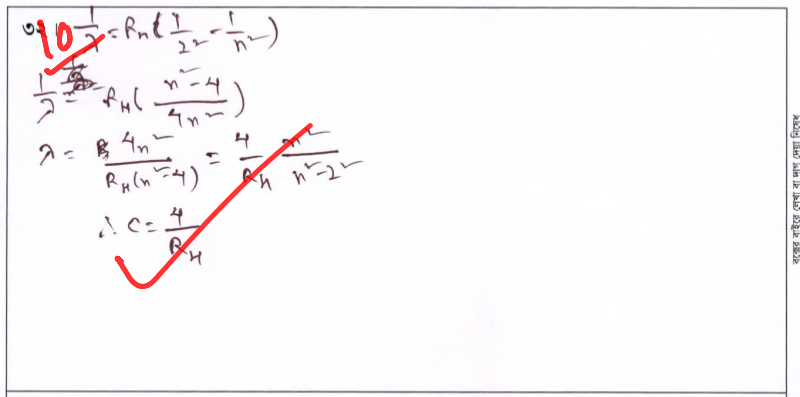 ৩। 1/λ = R_H (1/2² - 1/n²)
10
1/λ = R_H ( (n² - 4) / 4n² )
λ = 4n² / R_H (n² - 4) = 4/R_H n² / (n² - 2²)
∴ C = 4/R_H
বক্সের বাইরে লেখা বা দাগ দেয়া নিষেধ